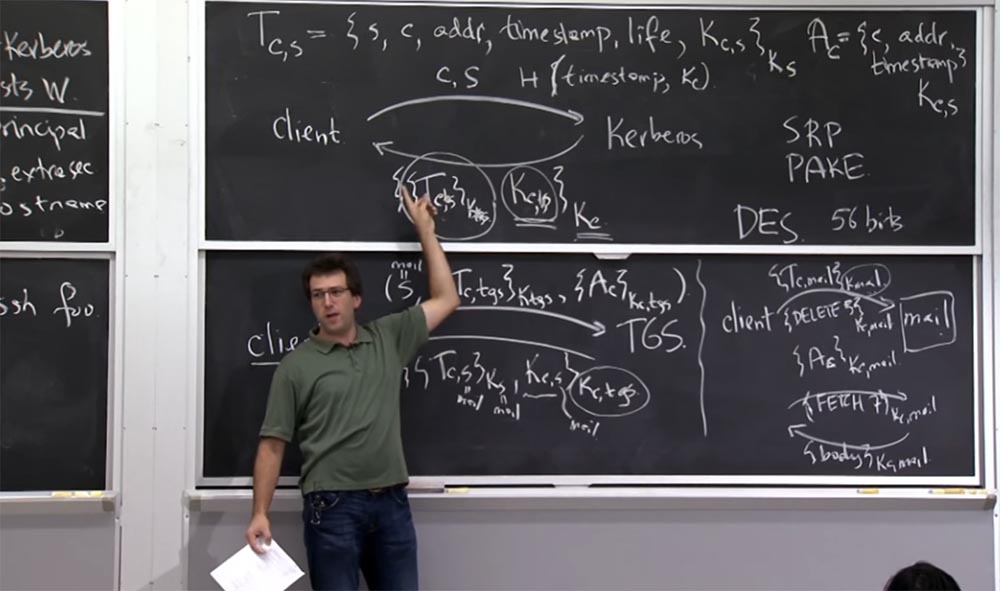 Kerberos
sts W.
rincipal
extrasec
ostname
ssh foo
T_{c,s} = { s, c, addr, timestamp, life, K_{c,s} }_{K_s}
A_c = { c, addr,
timestamp }
K_{c,s}
c, s H (timestamp, K_c).
client
Kerberos
{ { T_{c,tgs} }_{K_{tgs}} K_{c,tgs} }_{K_c}
SRP
PAKE.
DES. 56 bits
mail
=
(S, T_{c,tgs} }_{K_{tgs}}, { A_c }_{K_{c,tgs}} ).
clie
TGS.
{ { T_{c,s} }_{K_s}, K_{c,s} } K_{c,tgs}.
= mail = mail mail
{ T_{c,mail} }_{K_{mail}}
client
{ DELETE 5 }_{K_{c,mail}}
mail
{ A_c }_{K_{c,mail}}
{ FETCH 7 }_{K_{c,mail}}
{ body }_{K_{c,mail}}